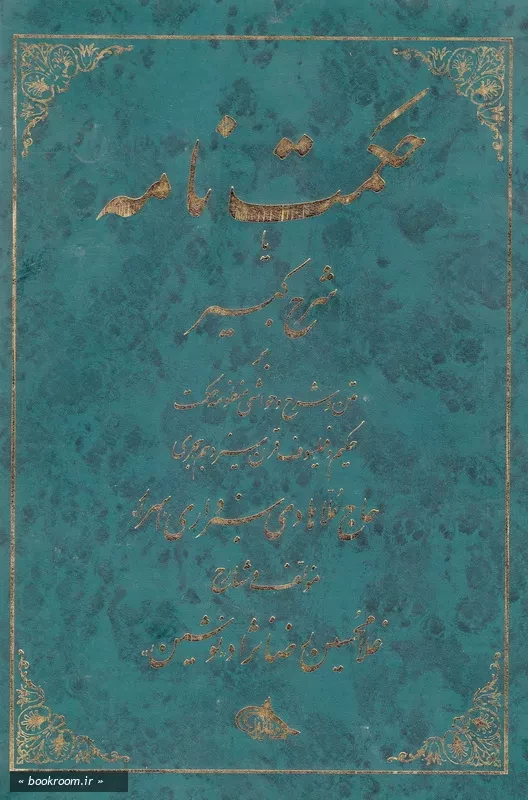 حکمت نامه
یا
شرح کبیر
متن و شرح و حواشی منظومه حکمت
حکیم و فیلسوف قرن سیزدهم هجری
حاج ملا هادی سبزواری اسرار
مؤلف و شارح
غلامحسین رضانژاد نوشین
« bookroom.ir »